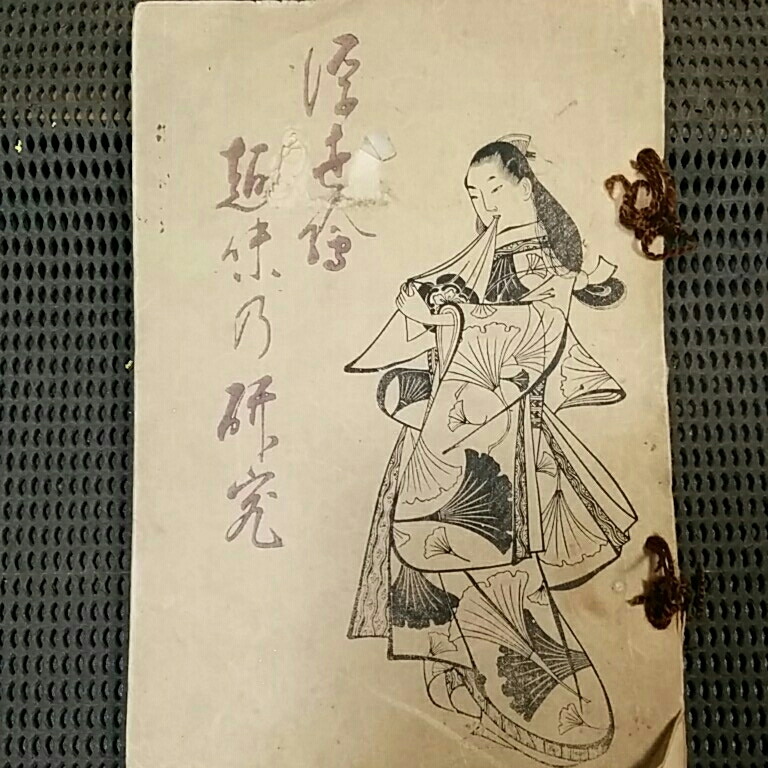 浮世繪
趣味乃研究